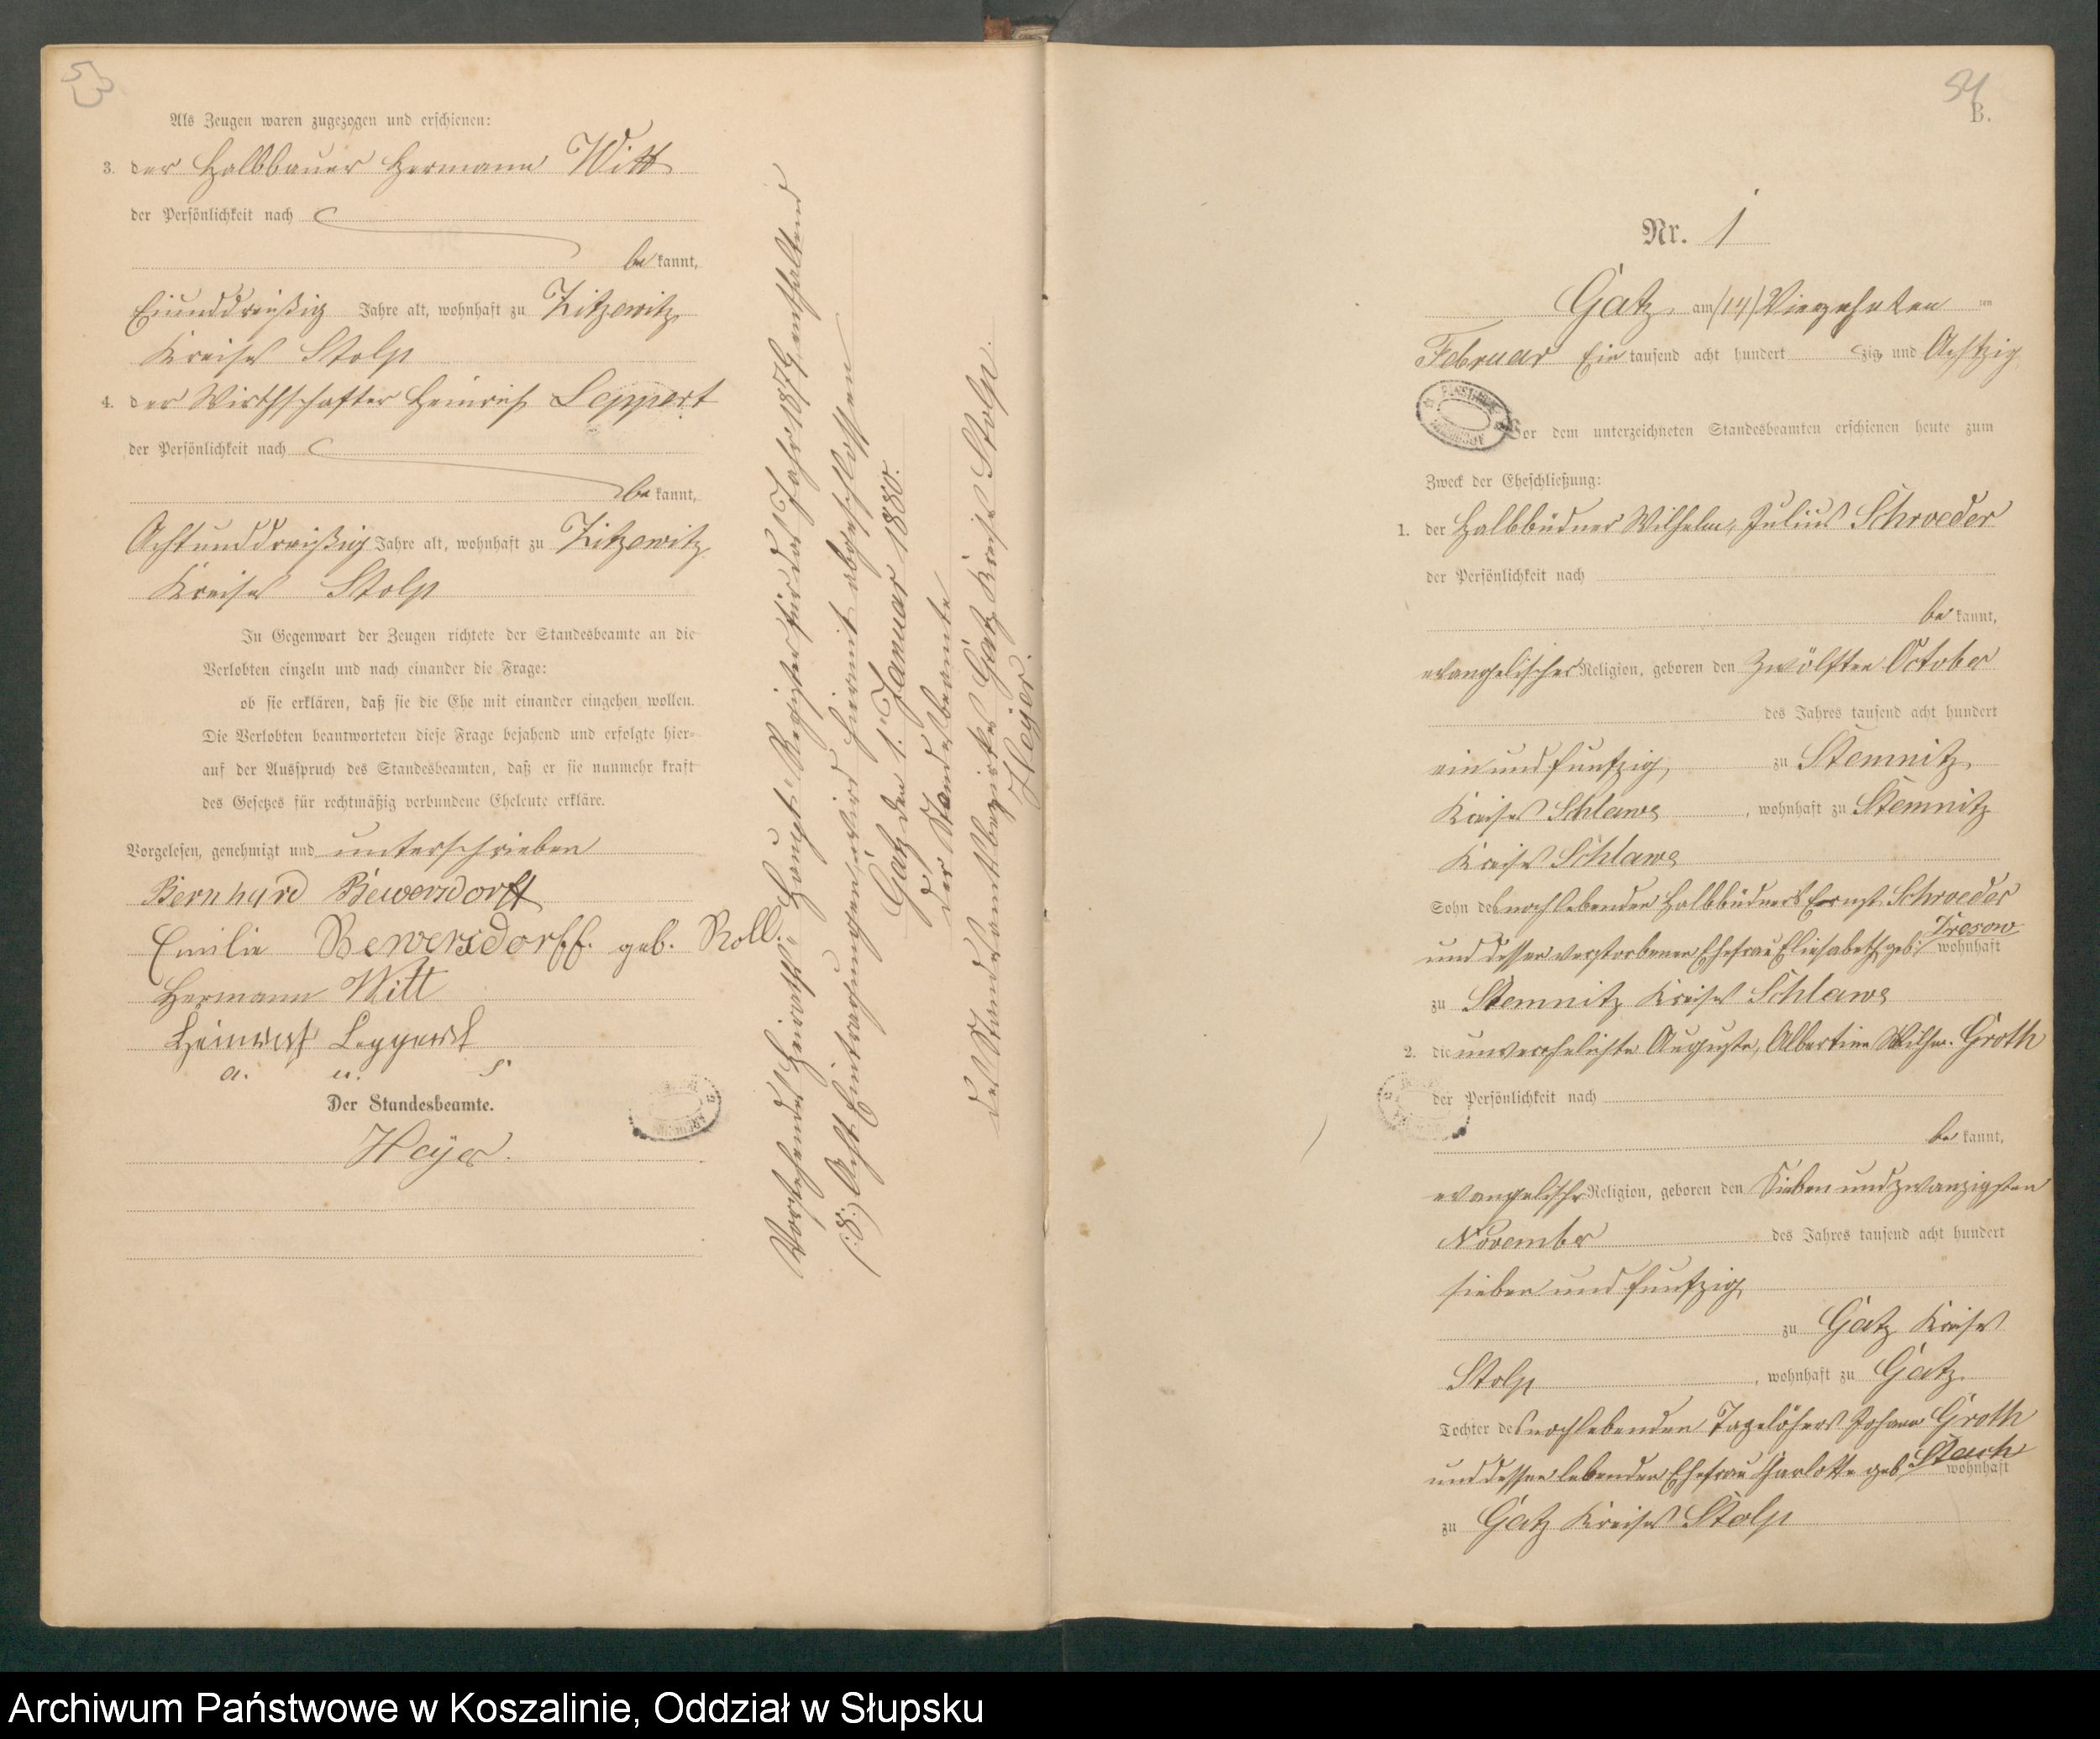 53
Als Zeugen waren zugezogen und erschienen:
3. der Halbbauer Hermann Witt
der Persönlichkeit nach
bekannt,
Einunddreißig Jahre alt, wohnhaft zu Zitzewitz
Kreises Stolp
4. der Wirthschafter Heinrich Leppert
der Persönlichkeit nach
bekannt,
Achtunddreißig Jahre alt, wohnhaft zu Zitzewitz
Kreises Stolp
In Gegenwart der Zeugen richtete der Standesbeamte an die
Verlobten einzeln und nach einander die Frage:
ob sie erklären, daß sie die Ehe mit einander eingehen wollen.
Die Verlobten beantworteten diese Frage bejahend und erfolgte hier-
auf der Ausspruch des Standesbeamten, daß er sie nunmehr kraft
des Gesetzes für rechtmäßig verbundene Eheleute erkläre.
Vorgelesen, genehmigt und unterschrieben
Bernhard Bewersdorff
Emilie Bewersdorff. geb. Noll.
Hermann Witt
Heinrich Leppert
a. u. s.
Der Standesbeamte.
Heyer.
Vorstehendes Heiraths-Haupt-Register für das Jahr 1879, enthaltend
(:8:) Acht Eintragungen, wird hiermit abgeschlossen
Gatz, den 1. Januar 1880.
Der Standesbeamte
des Standesamtsbezirkes Gatz Kreises Stolp.
Heyer.
54
B.
Nr. 1
Gatz, am (14) Vierzehnten ten
Februar Ein tausend acht hundert zig und Achtzig
Vor dem unterzeichneten Standesbeamten erschienen heute zum
Zweck der Eheschließung:
1. der Halbbüdner Wilhelm, Julius Schroeder
der Persönlichkeit nach
bekannt,
evangelischer Religion, geboren den Zwölften October
des Jahres tausend acht hundert
ein und funfzig, zu Stemnitz,
Kreises Schlawe, wohnhaft zu Stemnitz
Kreises Schlawe
Sohn des noch lebenden Halbbüdners Ernst Schroeder
und dessen verstorbenen Ehefrau Eliesabeth, geb. Tresow wohnhaft
zu Stemnitz Kreises Schlawe
2. die unverehelichte Auguste, Albertine Wilhe. Groth
der Persönlichkeit nach
bekannt,
evangelischer Religion, geboren den Siebenundzwanzigsten
November des Jahres tausend acht hundert
sieben und funfzig,
zu Gatz Kreises
Stolp, wohnhaft zu Gatz.
Tochter des noch lebenden Tagelöhners Johann Groth
und dessen lebenden Ehefrau Charlotte geb. wohnhaft
zu Gatz Kreises Stolp
Archiwum Państwowe w Koszalinie, Oddział w Słupsku